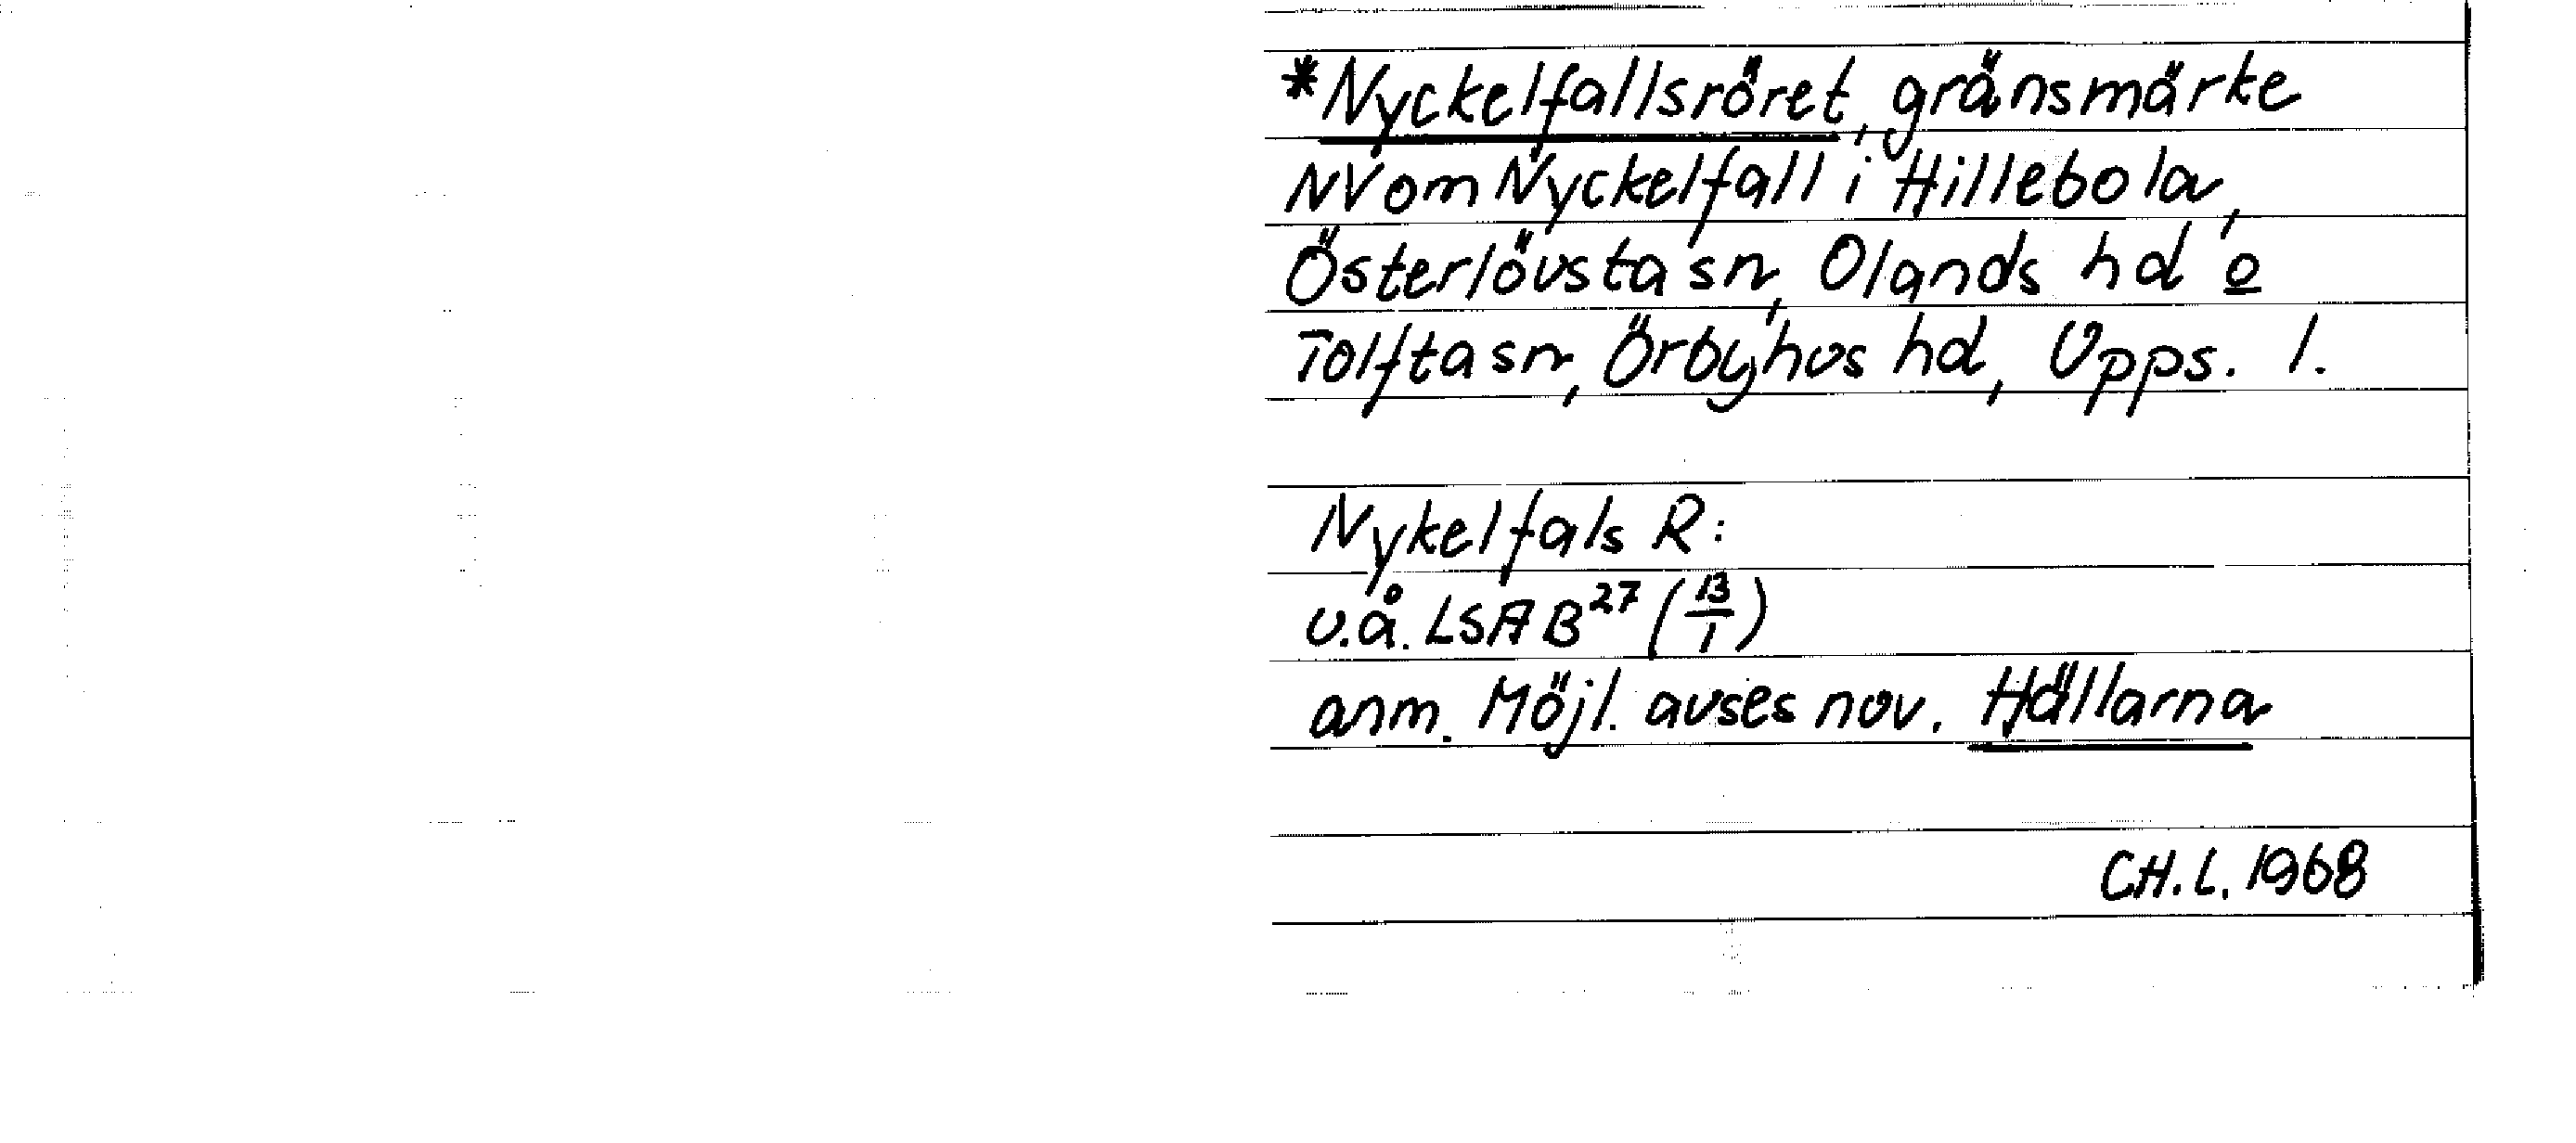 *Nyckelfallsröret, gränsmärke
NV om Nyckelfall i Hillebola,
Österlövsta sn, Olands hd o
Tolfta sn, Örbyhus hd, Upps. l.
Nykelfals R:
u.å. LSA B²⁷ (13/1)
anm. Möjl. avses nuv. Hällarna
CH.L. 1968